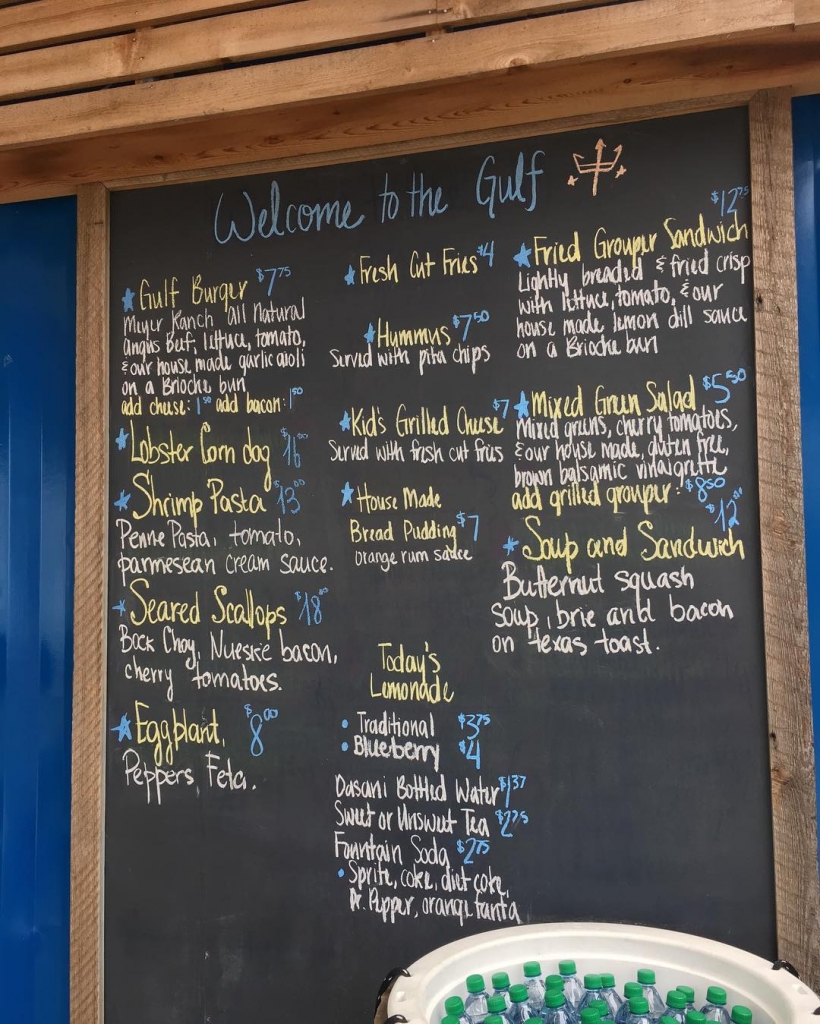 Welcome to the Gulf
Gulf Burger $7.75
Meyer Ranch all Natural
angus Beef, lettuce, tomato,
& our house made garlic aioli
on a Brioche bun
add cheese: 1.50 add bacon: 1.50
Lobster Corn dog $16
Shrimp Pasta $13
Penne Pasta, tomato,
parmesean cream sauce.
Seared Scallops $18
Bock Choy, Nueske bacon,
cherry tomatoes.
Eggplant, $8.00
Peppers, Feta.
Fresh Cut Fries $4
Hummus $7.50
Served with pita chips
Kid's Grilled Cheese $7
Served with fresh cut fries
House Made
Bread Pudding $7
orange rum sauce
Today's
Lemonade
Traditional $3.75
Blueberry $4
Dasani Bottled Water $1.37
Sweet or Unsweet Tea $2.75
Fountain Soda $2.75
Sprite, coke, diet coke,
Dr. Pepper, orange fanta
$12.75
Fried Grouper Sandwich
Lightly breaded & fried crisp
with lettuce, tomato, & our
house made lemon dill sauce
on a Brioche bun
Mixed Green Salad $5.50
Mixed greens, cherry tomatoes,
& our house made, gluten free,
brown balsamic vinaigrette
add grilled grouper: $8.50
$12.00
Soup and Sandwich
Butternut squash
soup, brie and bacon
on texas toast.